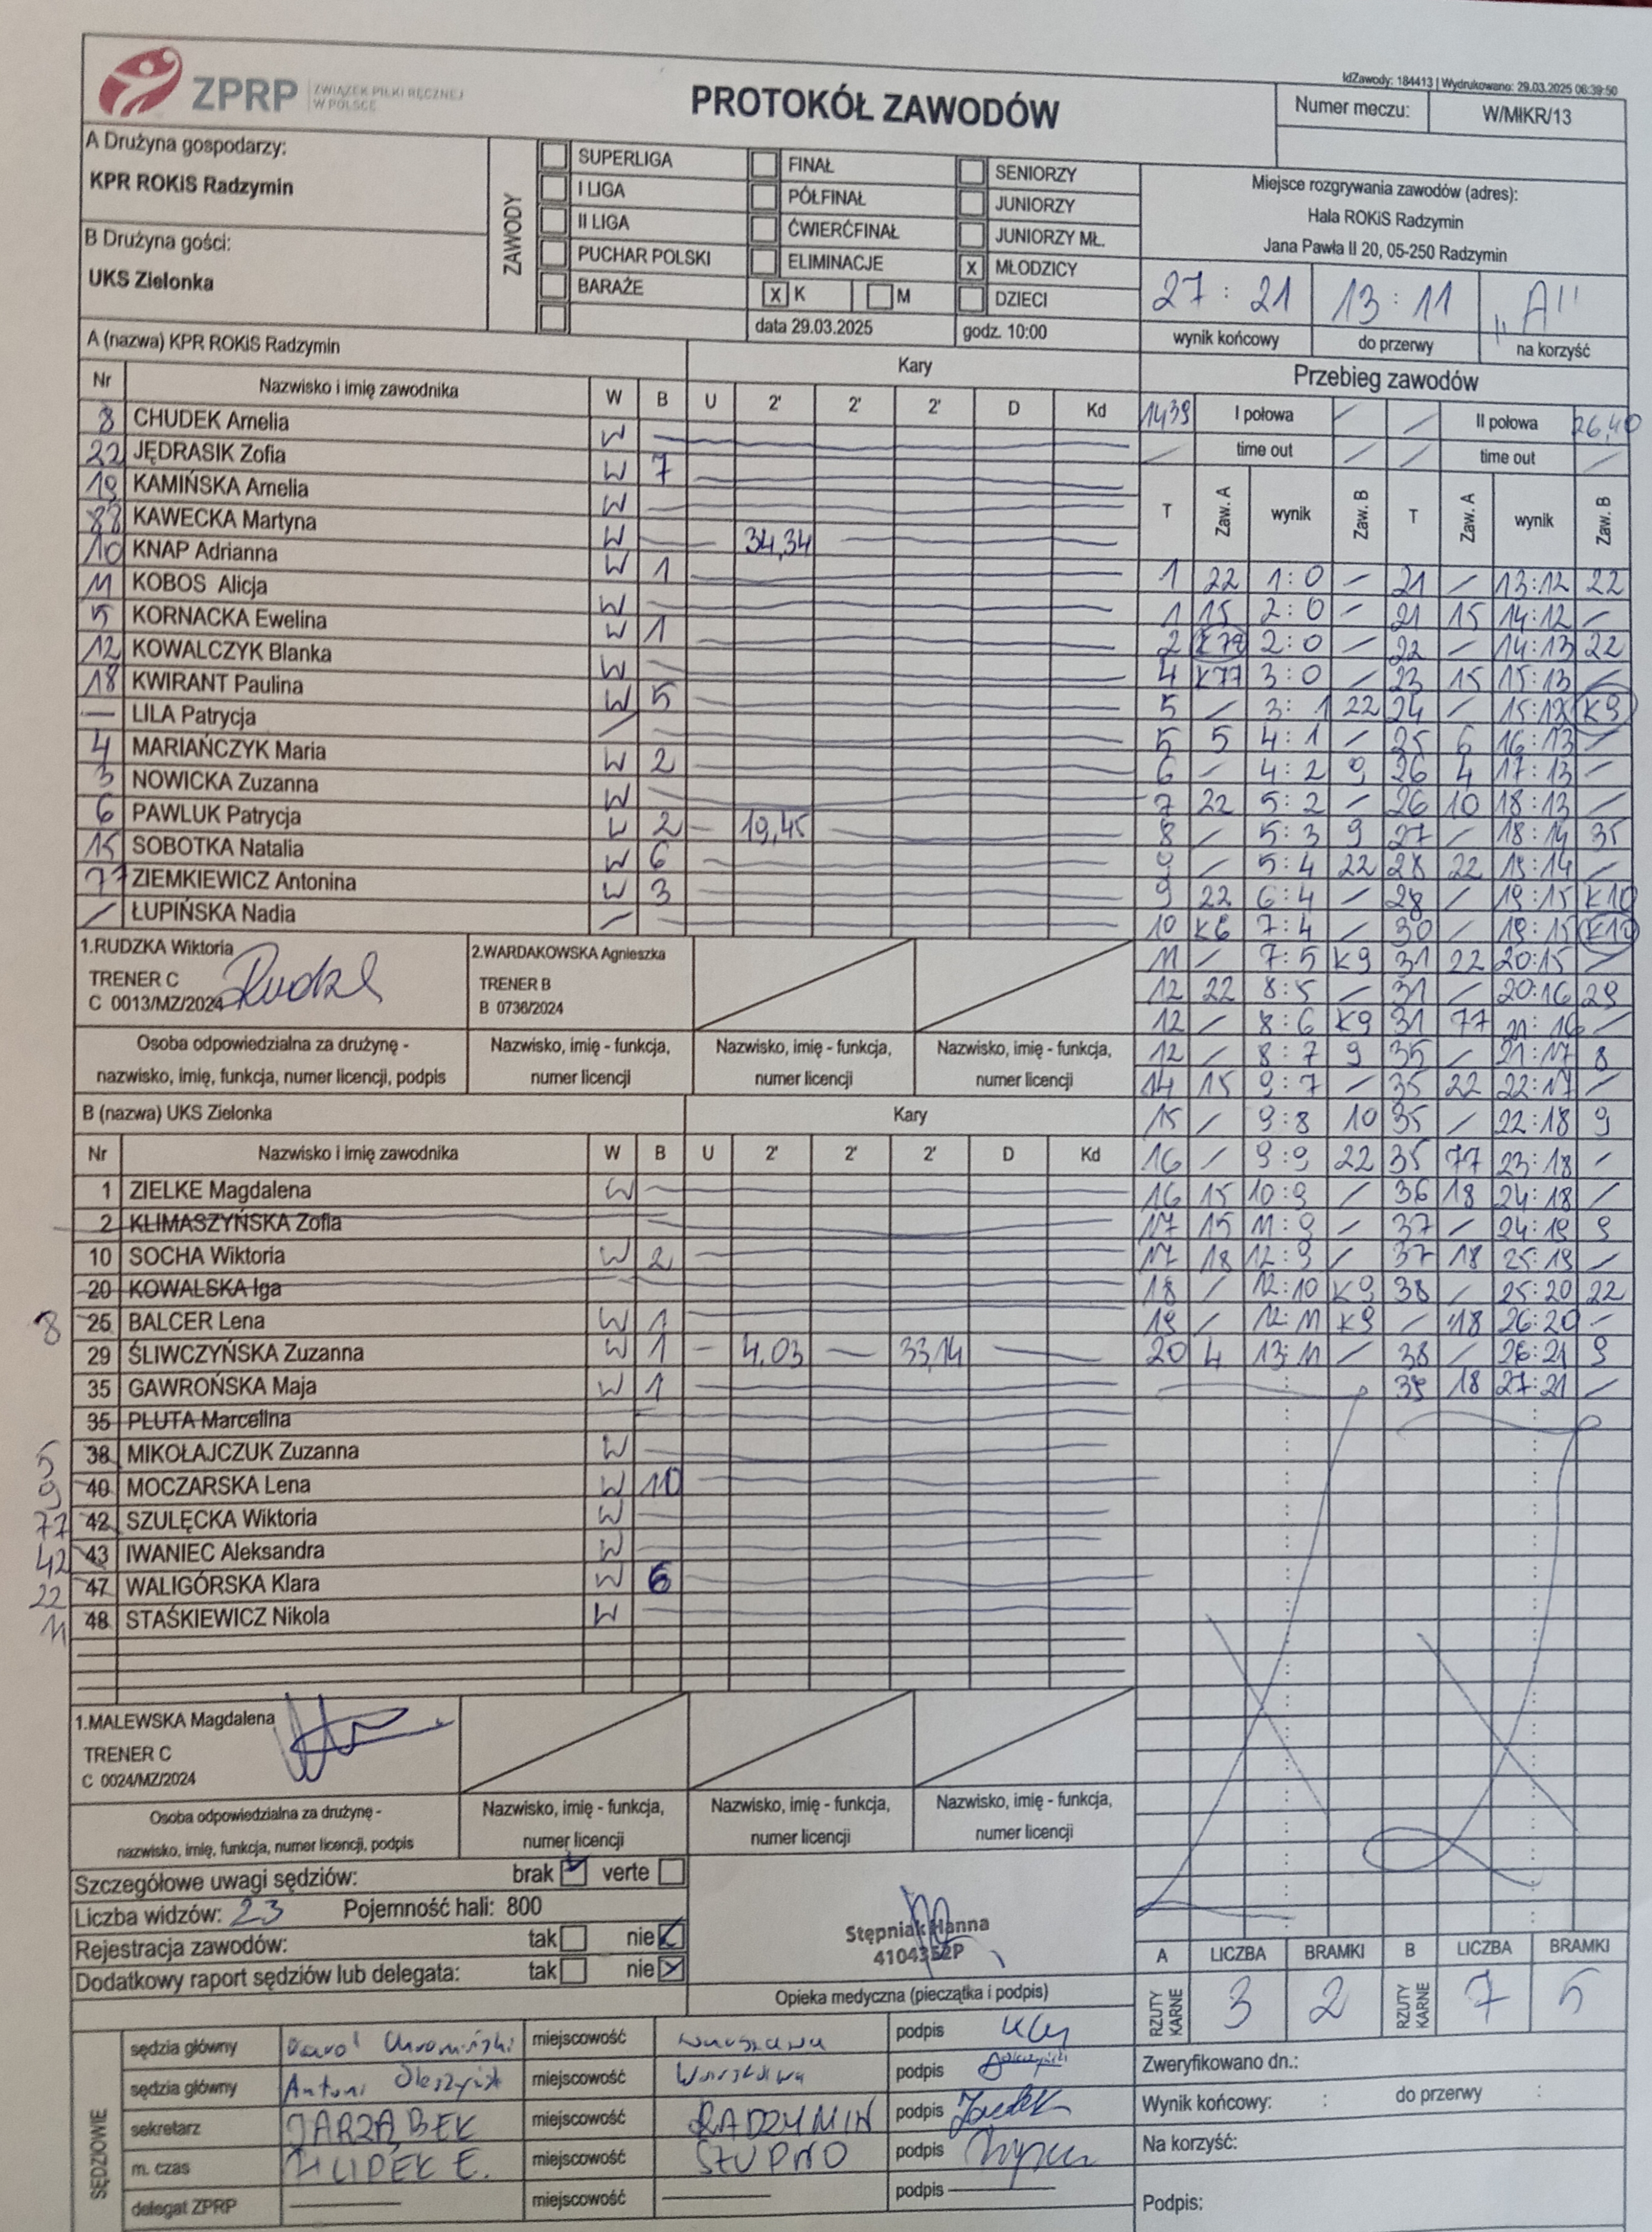 IdZawody: 184413 | Wydrukowano: 29.03.2025 06:39:50
ZPRP ZWIĄZEK PIŁKI RĘCZNEJ W POLSCE
PROTOKÓŁ ZAWODÓW
Numer meczu: W/MłKR/13
A Drużyna gospodarzy:
KPR ROKiS Radzymin
B Drużyna gości:
UKS Zielonka
ZAWODY
SUPERLIGA FINAŁ SENIORZY
I LIGA PÓŁFINAŁ JUNIORZY
II LIGA ĆWIERĆFINAŁ JUNIORZY MŁ.
PUCHAR POLSKI ELIMINACJE X MŁODZICY
BARAŻE X K M DZIECI
data 29.03.2025 godz. 10:00
Miejsce rozgrywania zawodów (adres):
Hala ROKiS Radzymin
Jana Pawła II 20, 05-250 Radzymin
27 : 21 13 : 11 "A"
wynik końcowy do przerwy na korzyść
A (nazwa) KPR ROKiS Radzymin Kary
Nr Nazwisko i imię zawodnika W B U 2' 2' 2' D Kd
8 CHUDEK Amelia W
22 JĘDRASIK Zofia W 7
19 KAMIŃSKA Amelia W
KAWECKA Martyna W 34,34
10 KNAP Adrianna W 1
11 KOBOS Alicja W
5 KORNACKA Ewelina W 1
12 KOWALCZYK Blanka W
18 KWIRANT Paulina W 5
— LILA Patrycja /
4 MARIAŃCZYK Maria W 2
3 NOWICKA Zuzanna W
6 PAWLUK Patrycja W 2 19,45
15 SOBOTKA Natalia W 6
77 ZIEMKIEWICZ Antonina W 3
/ ŁUPIŃSKA Nadia /
1.RUDZKA Wiktoria
TRENER C
C 0013/MZ/2024
2.WARDAKOWSKA Agnieszka
TRENER B
B 0736/2024
Osoba odpowiedzialna za drużynę -
nazwisko, imię, funkcja, numer licencji, podpis
Nazwisko, imię - funkcja, numer licencji
Nazwisko, imię - funkcja, numer licencji
Nazwisko, imię - funkcja, numer licencji
B (nazwa) UKS Zielonka Kary
Nr Nazwisko i imię zawodnika W B U 2' 2' 2' D Kd
1 ZIELKE Magdalena W
2 KLIMASZYŃSKA Zofia
10 SOCHA Wiktoria W 2
20 KOWALSKA Iga
8 25 BALCER Lena W 1
29 ŚLIWCZYŃSKA Zuzanna W 1 4,03 33,14
35 GAWROŃSKA Maja W 1
35 PLUTA Marcelina
5 38 MIKOŁAJCZUK Zuzanna W
9 40 MOCZARSKA Lena W 10
77 42 SZULĘCKA Wiktoria W
42 43 IWANIEC Aleksandra W
22 47 WALIGÓRSKA Klara W 6
11 48 STAŚKIEWICZ Nikola W
1.MALEWSKA Magdalena
TRENER C
C 0024/MZ/2024
Osoba odpowiedzialna za drużynę -
nazwisko, imię, funkcja, numer licencji, podpis
Nazwisko, imię - funkcja, numer licencji
Nazwisko, imię - funkcja, numer licencji
Nazwisko, imię - funkcja, numer licencji
Szczegółowe uwagi sędziów: brak verte
Liczba widzów: 23 Pojemność hali: 800
Rejestracja zawodów: tak nie
Dodatkowy raport sędziów lub delegata: tak nie
Stępniak Hanna
4104352P
Opieka medyczna (pieczątka i podpis)
Przebieg zawodów
1439 I połowa / / II połowa 26,40
/ time out / / time out /
T Zaw. A wynik Zaw. B T Zaw. A wynik Zaw. B
1 22 1:0 / 21 / 13:12 22
1 15 2:0 / 21 15 14:12 /
2 K77 2:0 / 22 / 14:13 22
4 K77 3:0 / 23 15 15:13 /
5 / 3:1 22 24 / 15:13 K9
5 5 4:1 / 25 6 16:13 /
6 / 4:2 9 26 4 17:13 /
7 22 5:2 / 26 10 18:13 /
8 / 5:3 9 27 / 18:14 35
9 / 5:4 22 28 22 19:14 /
9 22 6:4 / 28 / 19:15 K10
10 K6 7:4 / 30 / 19:15 K10
11 / 7:5 K9 31 22 20:15 /
12 22 8:5 / 31 / 20:16 29
12 / 8:6 K9 31 77 21:16 /
12 / 8:7 9 35 / 21:17 8
14 15 9:7 / 35 22 22:17 /
15 / 9:8 10 35 / 22:18 9
16 / 9:9 22 35 77 23:18 /
16 15 10:9 / 36 18 24:18 /
17 15 11:9 / 37 / 24:19 9
17 18 12:9 / 37 18 25:19 /
18 / 12:10 K9 38 / 25:20 22
19 / 12:11 K9 / 18 26:20 -
20 4 13:11 / 38 / 26:21 9
39 18 27:21 /
A LICZBA BRAMKI B LICZBA BRAMKI
RZUTY KARNE 3 2 RZUTY KARNE 7 5
SĘDZIOWIE
sędzia główny Karol miejscowość Warszawa podpis
sędzia główny Antoni miejscowość Warszawa podpis
sekretarz JARZĄBEK miejscowość RADZYMIN podpis
m. czas miejscowość SŁUPNO podpis
delegat ZPRP — miejscowość — podpis —
Zweryfikowano dn.:
Wynik końcowy: : do przerwy :
Na korzyść:
Podpis: